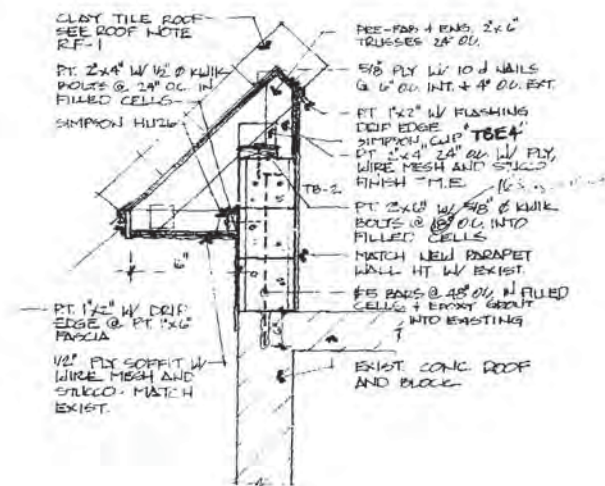 CLAY TILE ROOF
SEE ROOF NOTE
RF-1
P.T. 2"x4" W/ 1/2" Ø KWIK
BOLTS @ 24" O.C. IN
FILLED CELLS
SIMPSON HU26
6"
P.T. 1"x2" W/ DRIP
EDGE @ P.T. 1"x6"
FASCIA
1/2" PLY SOFFIT W/
WIRE MESH AND
STUCCO - MATCH
EXIST.
PRE-FAB & ENG. 2"x6"
TRUSSES 24" O.C.
5/8 PLY W/ 10 d NAILS
@ 6" O.C. INT. & 4" O.C. EXT.
P.T. 1"x2" W/ FLASHING
DRIP EDGE
SIMPSON CLIP "TBE4"
P.T. 2"x4" 24" O.C. W/ PLY,
WIRE MESH AND STUCCO
FINISH - M.E.
TB-2
16
P.T. 2x6" W/ 5/8" Ø KWIK
BOLTS @ 18" O.C. INTO
FILLED CELLS
MATCH NEW PARAPET
WALL HT. W/ EXIST.
#5 BARS @ 48" O.C. IN FILLED
CELLS & EPOXY GROUT
INTO EXISTING
EXIST. CONC. ROOF
AND BLOCK